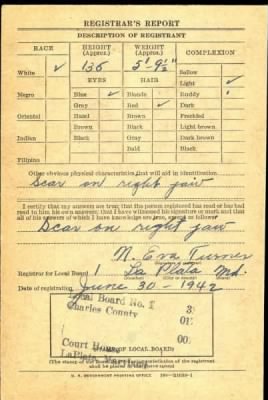 REGISTRAR'S REPORT
DESCRIPTION OF REGISTRANT
RACE HEIGHT (Approx.) WEIGHT (Approx.) COMPLEXION
White ✓ 136 5'-9½" Sallow
EYES HAIR Light ✓
Negro Blue ✓ Blonde Ruddy
Gray Red ✓ Dark
Oriental Hazel Brown Freckled
Brown Black Light brown
Indian Black Gray Dark brown
Bald Black
Filipino
Other obvious physical characteristics that will aid in identification
Scar on right jaw
I certify that my answers are true; that the person registered has read or has had
read to him his own answers; that I have witnessed his signature or mark and that
all of his answers of which I have knowledge are true, except as follows:
Scar on right jaw
N. Eva Turner
Registrar for Local Board 1 La Plata Md.
Date of registration June 30 - 1942
Local Board No. 1
Charles County
Court House
LaPlata, Maryland
(STAMP OF LOCAL BOARD)
(The stamp of the Local Board having jurisdiction of the registrant
shall be placed in the above space)
U. S. GOVERNMENT PRINTING OFFICE